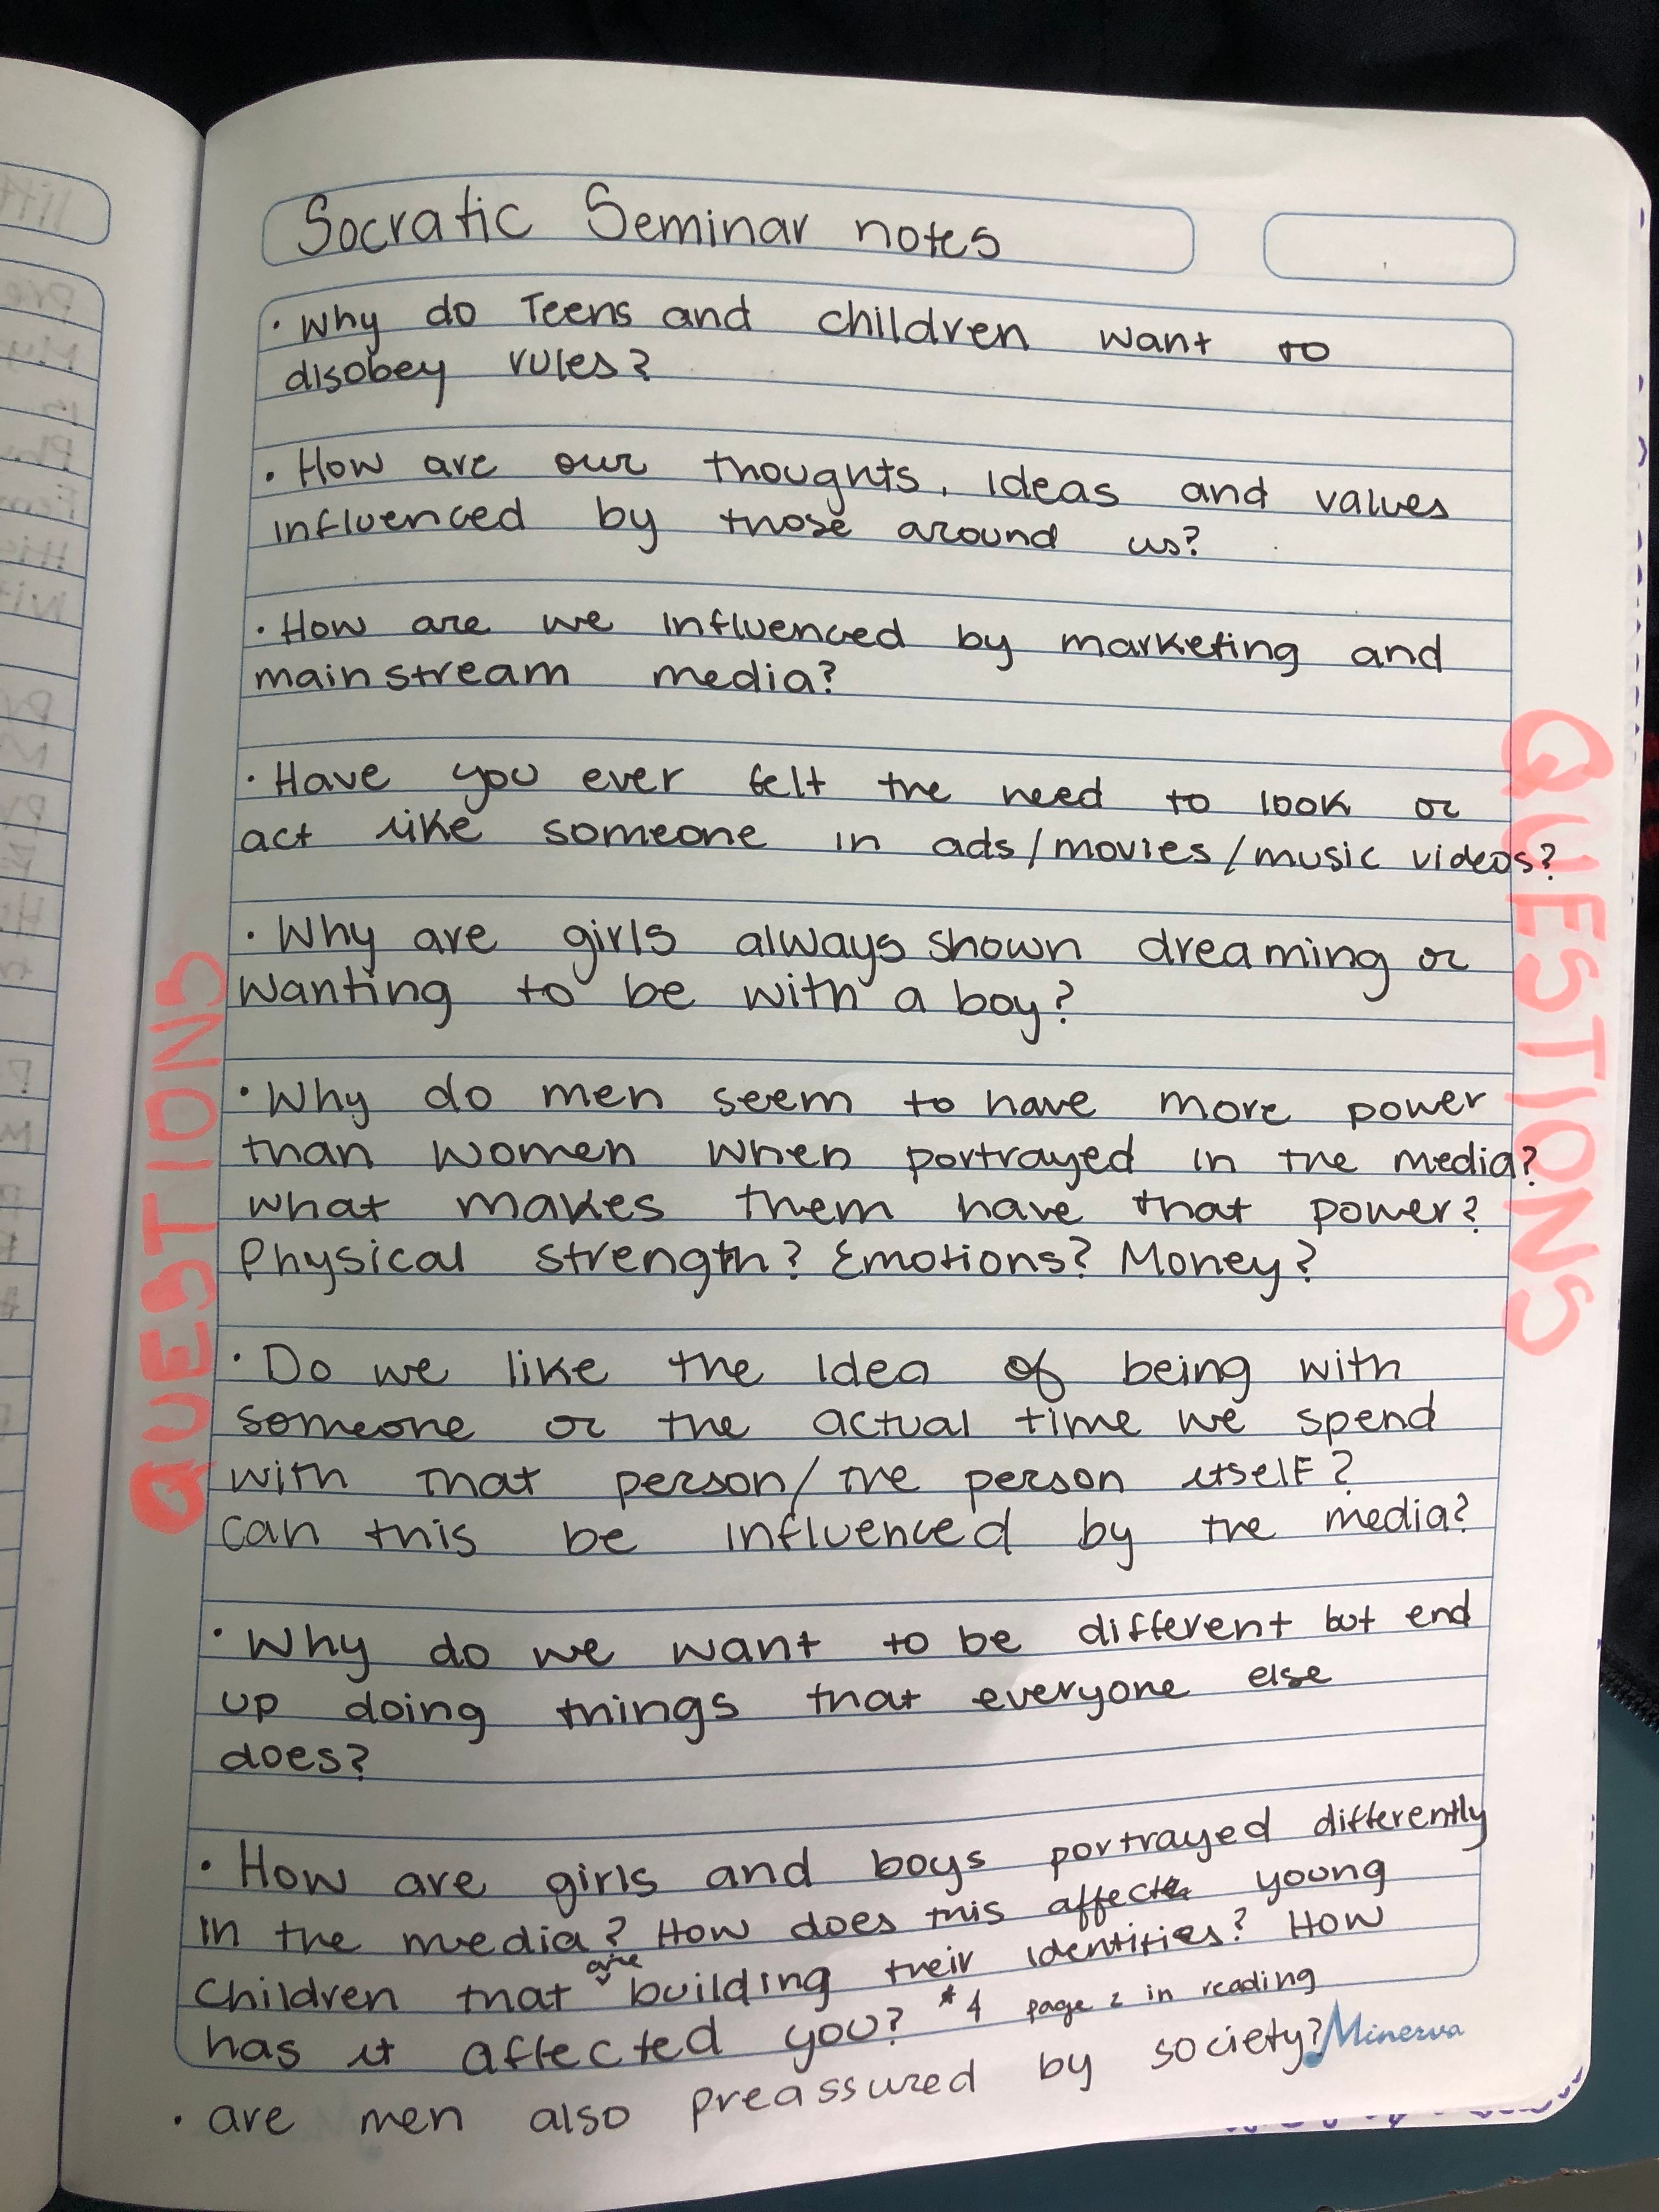 Socratic Seminar notes
• Why do Teens and children want to
disobey rules?
• How are our thoughts, ideas and values
influenced by those around us?
• How are we influenced by marketing and
mainstream media?
• Have you ever felt the need to look or
act like someone in ads/movies/music videos?
• Why are girls always shown dreaming or
wanting to be with a boy?
• Why do men seem to have more power
than women when portrayed in the media?
what makes them have that power?
Physical strength? Emotions? Money?
• Do we like the idea of being with
someone or the actual time we spend
with that person/the person itself?
can this be influenced by the media?
• Why do we want to be different but end
up doing things that everyone else
does?
• How are girls and boys portrayed differently
in the media? How does this affect young
children that are building their identities? How
has it affected you? *4 page 2 in reading
• are men also preassured by society?
Minerva
QUESTIONS
QUESTIONS